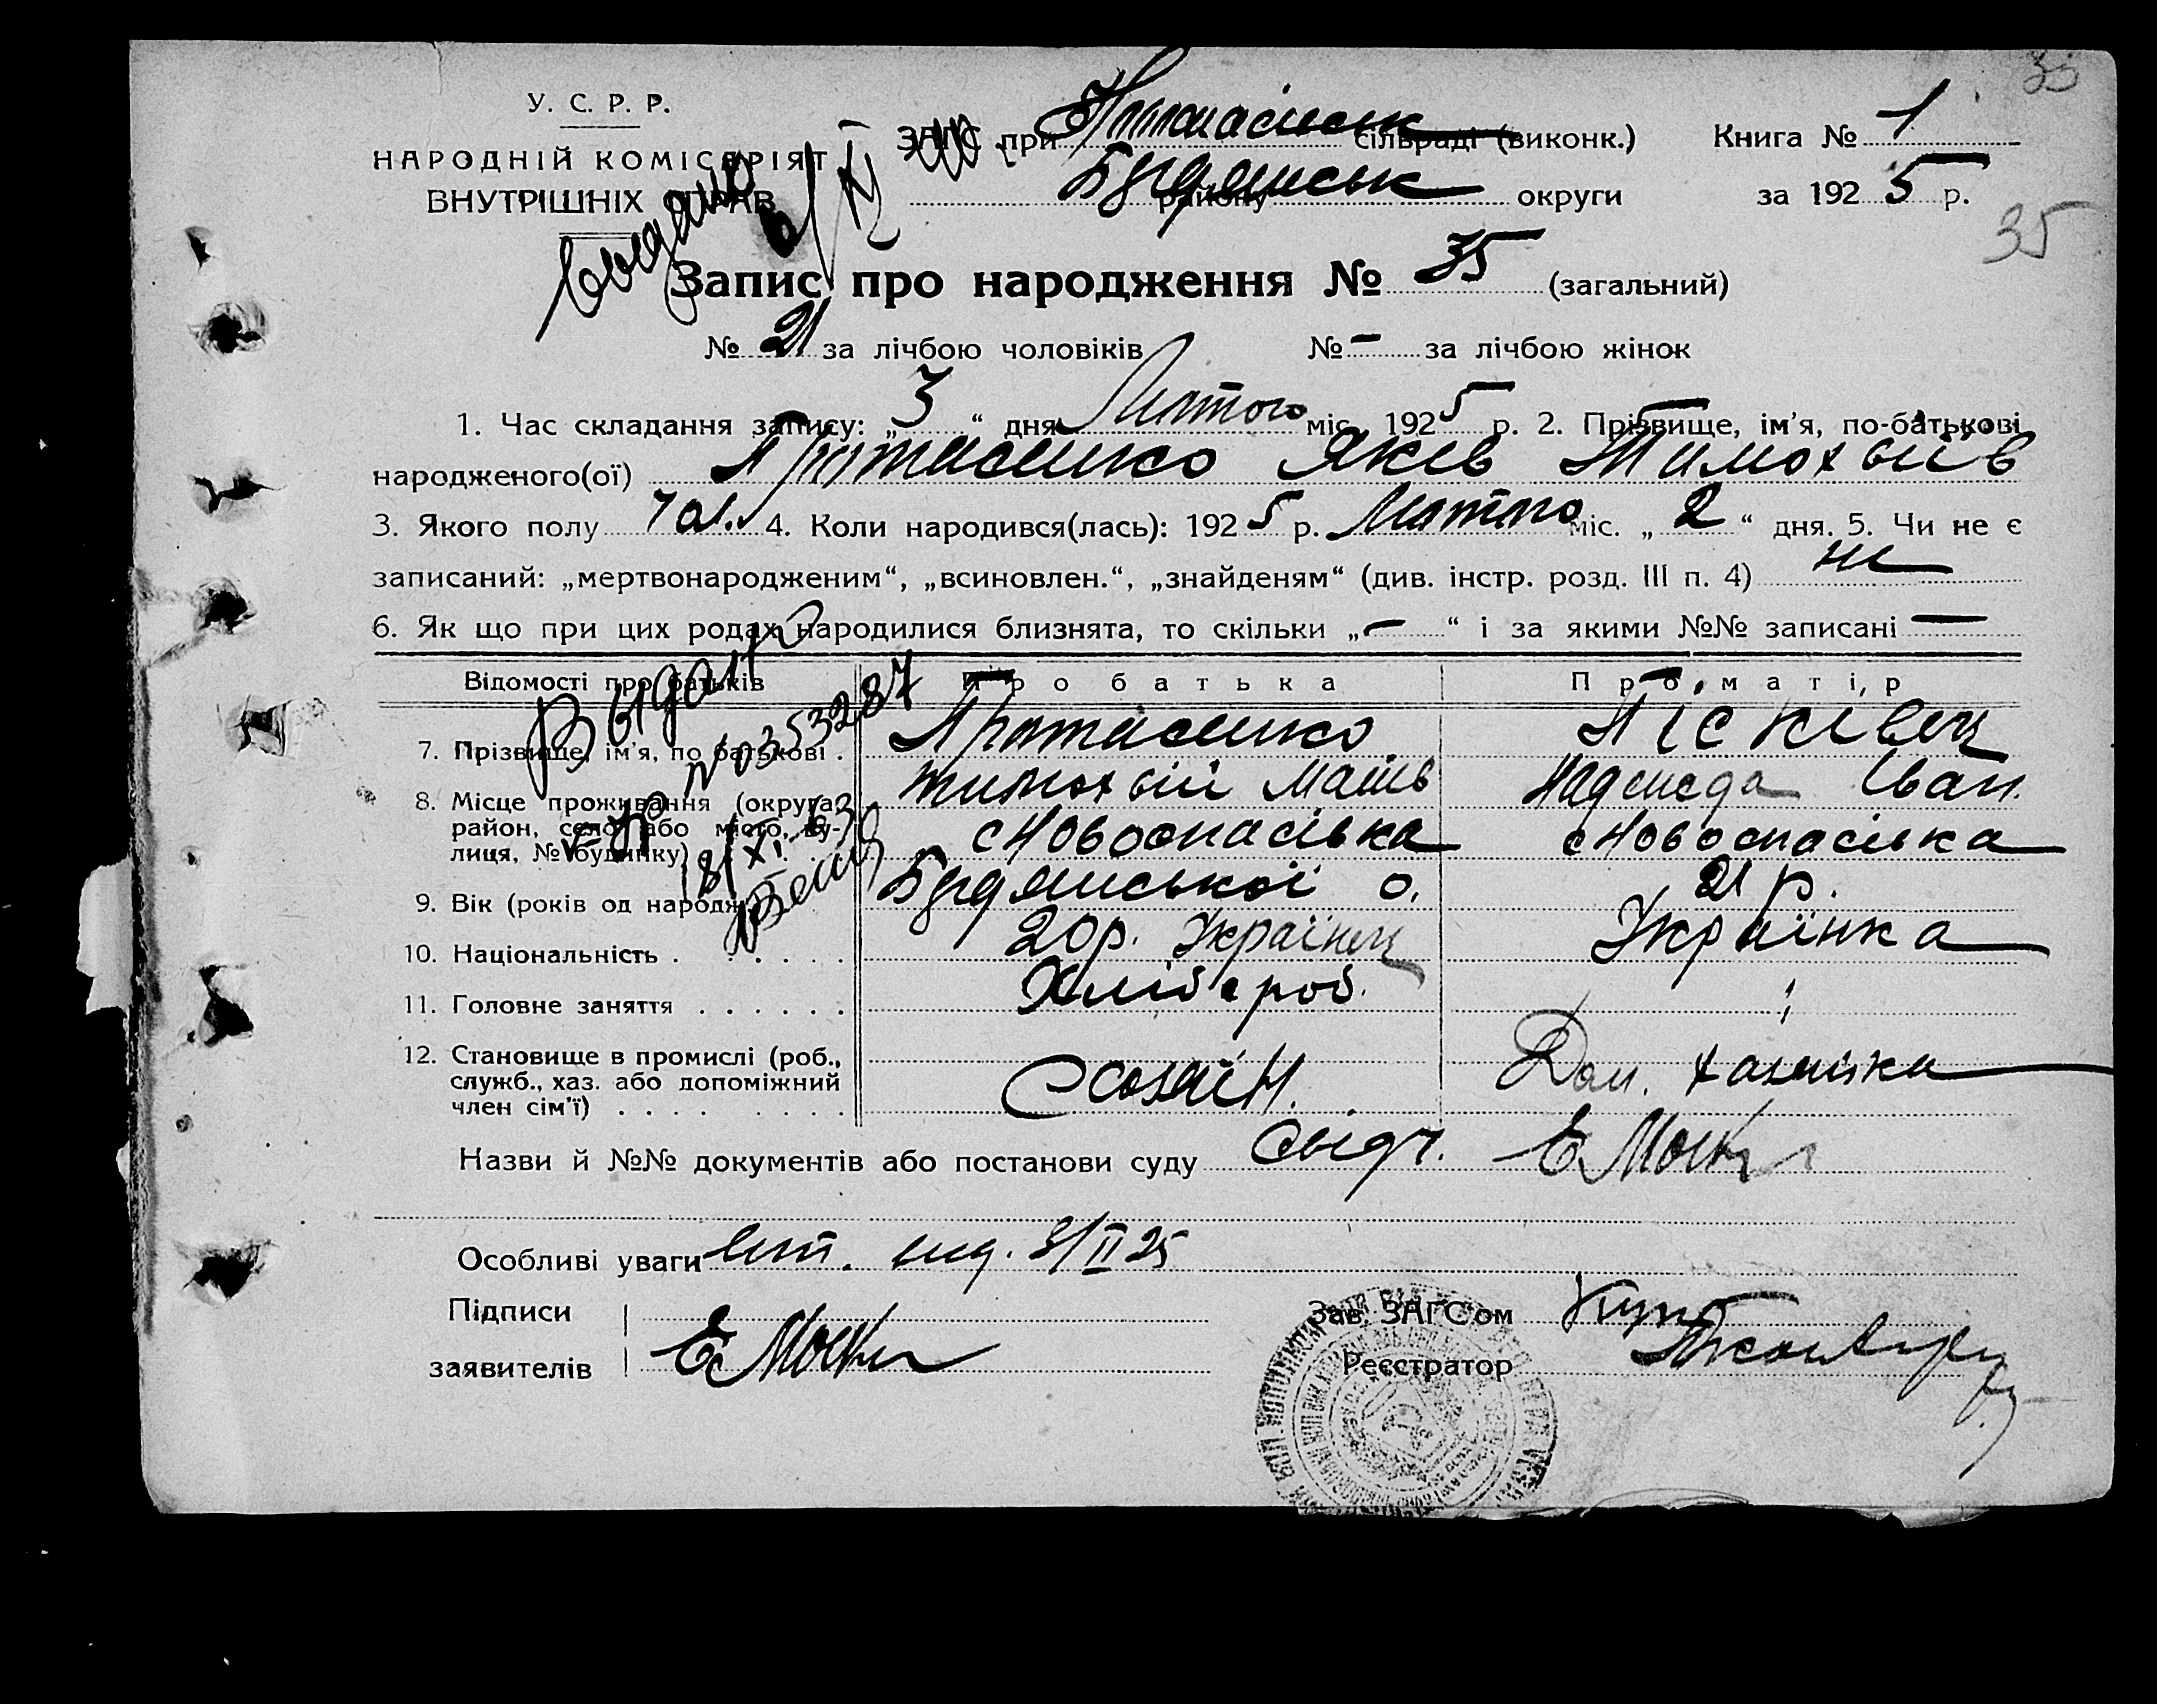 35
У. С. Р. Р.
НАРОДНІЙ КОМІСАРІЯТ
ВНУТРІШНІХ СПРАВ
ЗАГС при сільраді (виконк.) Книга № 1
району Бердянськ округи за 1925 р.
35
Видано
Запис про народження № 35 (загальний)
№ 21 за лічбою чоловіків № – за лічбою жінок
1. Час складання запису: „ 3 “ дня Лютого міс. 1925 р. 2. Прізвище, ім’я, по-батькові
народженого(ої) Протасенко Яків Тимохвіїв
3. Якого полу чол. 4. Коли народився(лась): 1925 р. Лютого міс. „ 2 “ дня. 5. Чи не є
записаний: „мертвонародженим“, „всиновлен.“, „знайденям“ (див. інстр. розд. III п. 4) ні
6. Як що при цих родах народилися близнята, то скільки „ – “ і за якими №№ записані –
Відомості про батьків Про батька Про матір
7. Прізвище, ім’я, по батькові . Протасенко
Тимохвій Матв Надежда Іван.
8. Місце проживання (округа,
район, село або місто, ву-
лиця, № будинку) с Новоспасівка с Новоспасівка
Бердянської о.
9. Вік (років од народж.) 20 р. 21 р.
10. Національність . Українец Українка
11. Головне заняття . . . . . . Хлібороб. "
12. Становище в промислі (роб.,
служб., хаз. або допоміжний
член сім’ї) . . . . . . . . Хозаїн. Дом. хазяйка
Видано
№ 353287
18/XI-63
Назви й №№ документів або постанови суду
Особливі уваги 3/II 25
Підписи
заявителів
Зав. ЗАГС’ом
Реєстратор